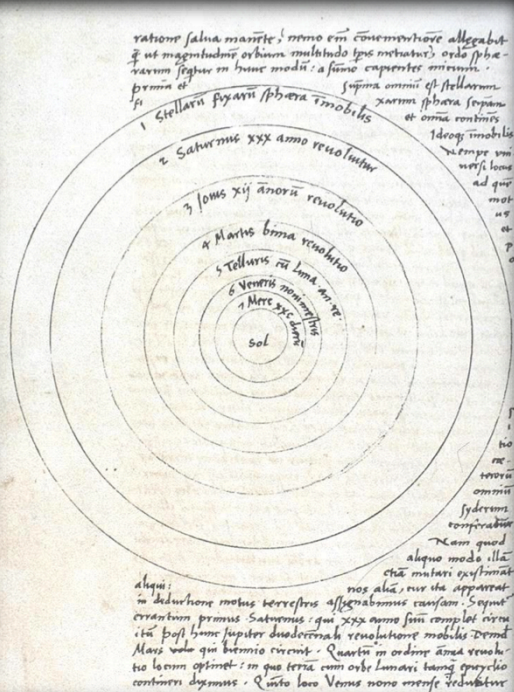 ratione salua manete, nemo em couenientiore allegabit
q ut magnitudine orbium multitudo tpis metiatur, ordo sphæ-
rarum sequitur in hunc modu: a sumo capientes initium.
prima et suprema omniu est stellarum
fi xarum sphæra seipam
et omnia continens
Ideoq; imobilis
Nempe vni
uersi locus
ad que
mot
us
et
p
1 Stellaru fixaru sphæra imobilis
2 Saturnus xxx anno reuoluitur
3 Jouis xij annoru reuolutio
4 Martis bima reuolutio
5 Telluris cu Luna an. re.
6 Veneris nonimestris
7 Merc xxc dieru
Sol
tio
cæ-
teroru
omniu
syderum
conferatur
Nam quod
aliquo modo illa
etia mutari existimat
aliqui: nos alia, cur ita appareat
in deductione motus terrestris assignabimus causam. Sequit
errantium primus Saturnus: qui xxx anno suu complet circu
itu post hunc Jupiter duodecenali reuolutione mobilis Deind
Mars qui biennio circuit. Quartu in ordine annua reuolu-
tio locum optinet: in quo terra cum orbe lunari tamq epicyclo
contineri diximus. Quinto loco Venus nono mense reducitur